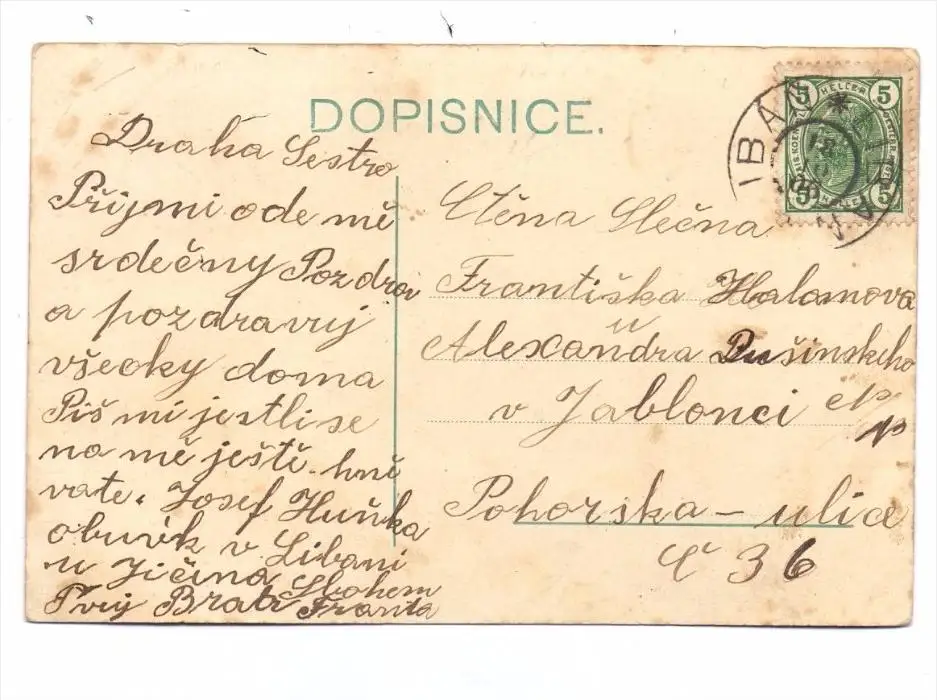 DOPISNICE.
Drahá Sestro
Přijmi ode mě
srdečny Pozdrav
a pozdravuj
všecky doma
Piš mi jestli se
na mě ještě hně
vate. Josef Huňka
obuvík v Libani
u Jičína Sbohem
Tvuj Bratr Franta
Ctěna Slečna
Františka Halamova
u
Alexandra Dušinskeho
v Jablonci
Pohorska – ulice
č 36
5 HELLER 5